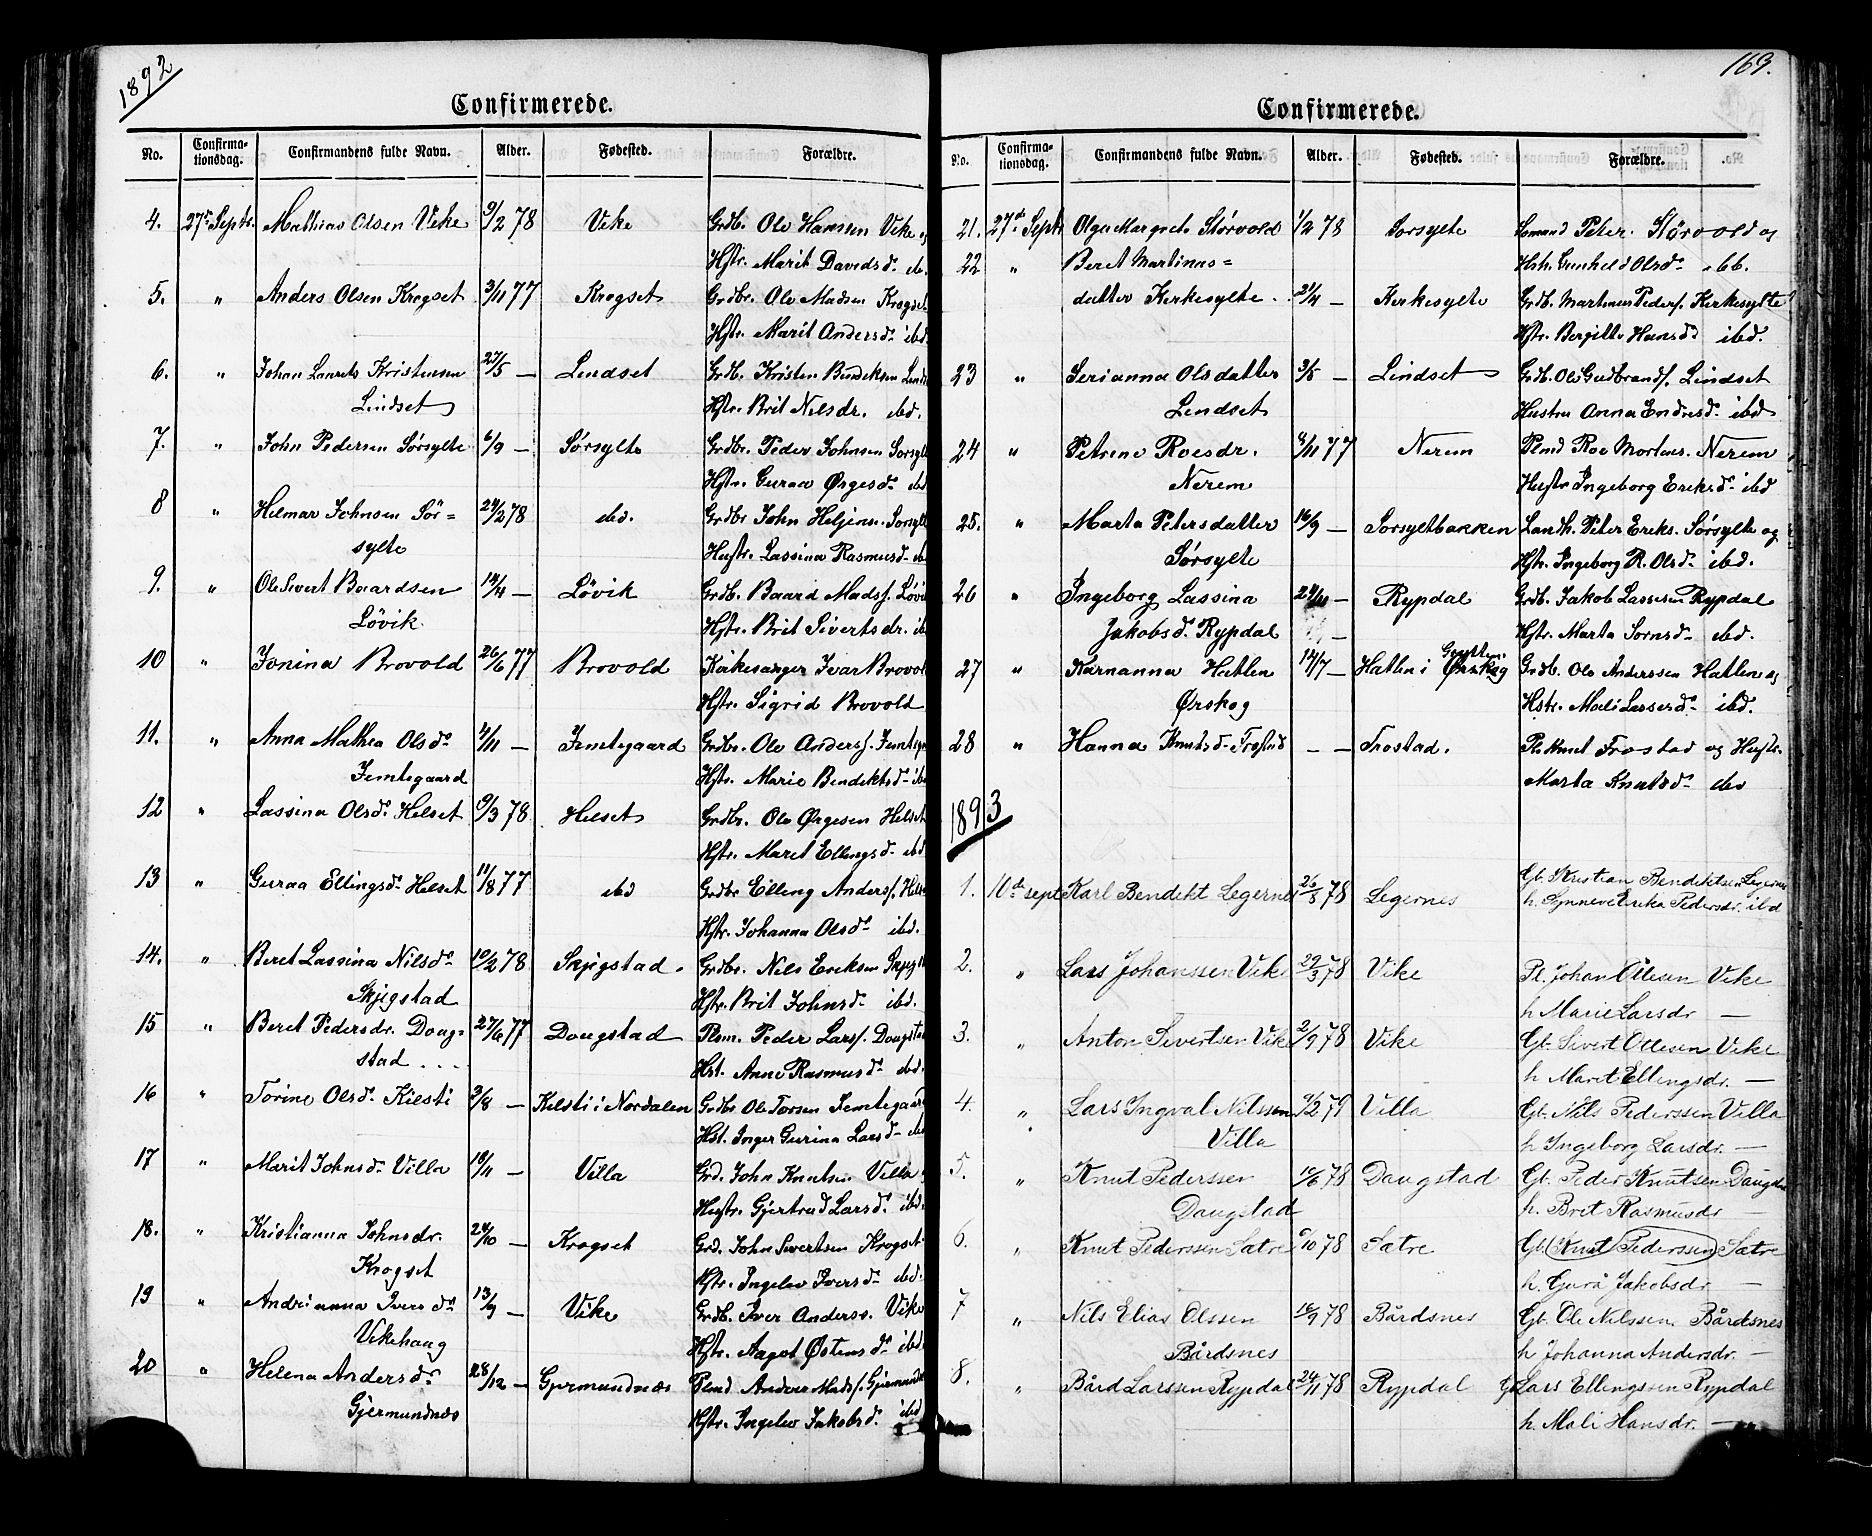 1892
Confirmerede.
No. Confirma-tionsdag. Confirmandens fulde Navn. Alder. Fødested. Forældre.
4. 27de Septr. Mathias Olsen Vike 9/2 78 Vike Grdb. Ole Hansen Vike og
Hstr. Marit Davidsd. ibd.
5. " Anders Olsen Krogset 3/11 77 Krogset Grdbr. Ole Madsen Krogset
Hstr. Marit Andersd. ibd.
6. " Johan Laurits Kristensen 27/5 — Lindset Grdb. Kristen Lindset
Lindset Hstr. Brit Nilsdr. ibd.
7. " John Pedersen Sørsylte 6/9 — Sørsylte Grdbr. Peder Johnsen Sorsylt
Hstr. Guraa Ørgesd. ibd
8 " Hilmar Johnsen Sør= 24/2 78 ibd. Grdbr John Sorsylt
sylte Hustr. Lassina Rasmusd. ib
9. " Ole Sivert Baardsen 14/4 — Løvik Grdb. Baard Madss. Løvi
Løvik. Hstr. Brit Sivertsdr. ib
10 " Jonina Brovold 26/6 77 Brovold Kirkesanger Ivar Brovol
Hstr. Sigrid Brovold
11. " Anna Mathea Olsd. 4/11 — Jemtegaard Grdbr. Ole Anderss. Jemtega
Jemtegaard Hstr. Marie Bendektsd. ib
12 " Lassina Olsd. Helset 9/3 78 Helset Grdbr. Ole Ørgesen Helset
Hstr. Maret Ellingsd. ibd
13 " Guraa Ellingsd. Helset 11/8 77 ibd Grdbr Elling Anderss. Hels
Hstr. Johanna Olsd. ibd.
14. " Beret Lassina Nilsd. 10/2 78 Skjegstad. Grdbr. Nils Eriksen Skjegst
Skjegstad Hstr. Brit Johnsd. ibd.
15 " Beret Pedersdr. Doug= 27/6 77 Dougstad Plsm. Peder Larss. Dougsta
stad . . . . Hst. Anne Rasmusd. ibd.
16 " Torine Olsd. Kilsti 2/8 — Kilsti i Nordalen Grdbr Ole Torsen Jemtegaar
Hst. Inger Gurina Larsd. ibd
17 " Marit Johnsd. Villa 19/11 — Villa Grd. John Knutsen Villa
Hustr. Gjertrud Larsd. ibd.
18. " Kristianna Johnsdr. 24/10 — Krogset Grd. John Sivertsen Krogset
Krogset Hstr. Ingelev Iversd. ibd.
19 " Andrianna Ivers d. 13/9 — Vike Grdb. Iver Anderss. Vike
Vikehaug Hstr. Aagot Østensd. ibd.
20 " Helena Andersd. 28/12 — Gjermundnæs Plmd Anders Madss. Gjermundn
Gjermundnæs Hstr. Ingelev Jakobsd. ibd
163.
Confirmerede.
No. Confirma-tionsdag. Confirmandens fulde Navn. Alder. Fødested. Forældre.
21. 27de Septr Olga Margrete Størvold 1/2 78 Sorsylte Somand Peter Størvold og
22 " Beret Martinus= Hstr. Gunhild Olsd. ibd.
datter Kirkesylte 21/4 — Kirkesylte Grdb. Martinus Peders. Kirkesylte
Hstr. Bergitte Hansd ibd.
23 " Serianna Olsdatter 3/5 — Lindset Grdb. Ole Gudbrands. Lindset
Lindset Hustru Anna Endresd. ibd
24 " Petrine Roesdr. 8/11 77 Nerem Plmd Roe Mortens. Nerem
Nerem Hustr Ingeborg Eriksd. ibd
25. " Marta Petersdatter 16/9 — Sorsyltbakken Landh. Peter Ereks. Sørsylte og
Sørsylte Hstr. Ingeborg R. Olsd. ibd.
26 " Ingeborg Lassina 24/10 — Rypdal Grdb. Jakob Lassesen Rypdal
Jakobsd. Rypdal — Hstr. Marta Sornsd. ibd.
27 " Karnanna Hatlen 14/7 — Hatlen i Ørskog Grdb. Ole Anderssen Hatlen og
Ørskog Hstr. Mali Lassesd. ibd.
28 " Hanna Knutsd. Frostad — — Frostad. Pl. Knut Frostad og Hustr.
Marta Knutsd. ibd
1893
1. 10de sept Karl Bendikt Legernes 26/3 78 Legernes Gb. Kristian Bendiktsen Legernes
h. Synneve Erika Pedersdr. ibd
2. " Lars Johanssen Vike 29/3 78 Vike Pl. Johan Ottesen Vike
h Marie Larsdr —
3. " Anton Sivertsen Vike 2/9 78 Vike Gb. Sivert Ottesen Vike
h Maret Ellingsdr. —
4. " Lars Ingval Nilssen 9/2 79 Villa Gb. Nils Pederssen Villa
Villa h Ingeborg Larsdr. —
5. " Knut Pederssen 10/6 78 Daugstad Gb. Peder Knutsen Daugstad
Daugstad h. Bret Rasmusdr —
6. " Knut Pederssen Satre 9/10 78 Satre Gb (Knut Pederssen) Satre
h. Gurå Jakobsdr —
7 " Nils Elias Olssen 16/9 78 Bårdsnes Gb. Ole Nilssen Bårdsnes
Bårdsnes h Johanna Andersdr. —
8. " Bård Larssen Rypdal 24/11 78 Rypdal Gb Lars Ellingssen Rypdal
h. Mali Hansdr. —